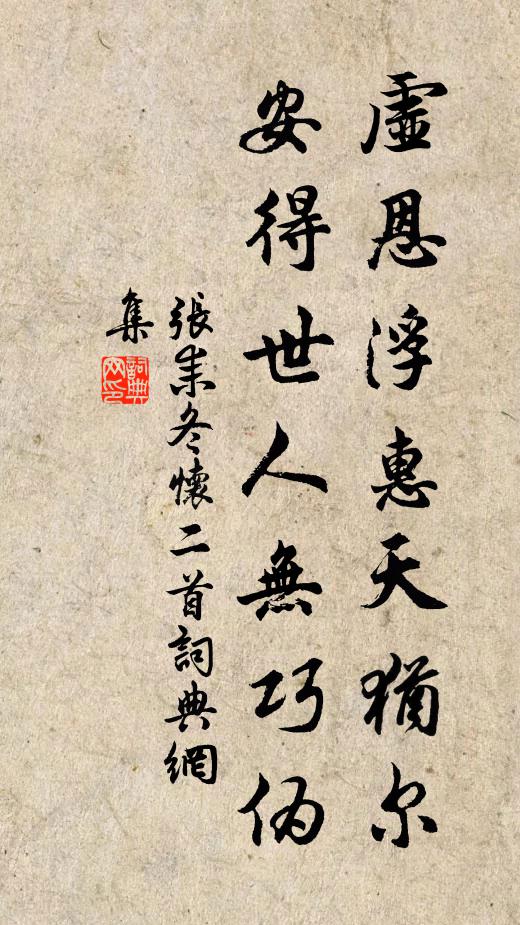 虛恩浮惠天猶尔
安得世人無巧伪
張耒冬懷二首詞典網
集
詞典
网印